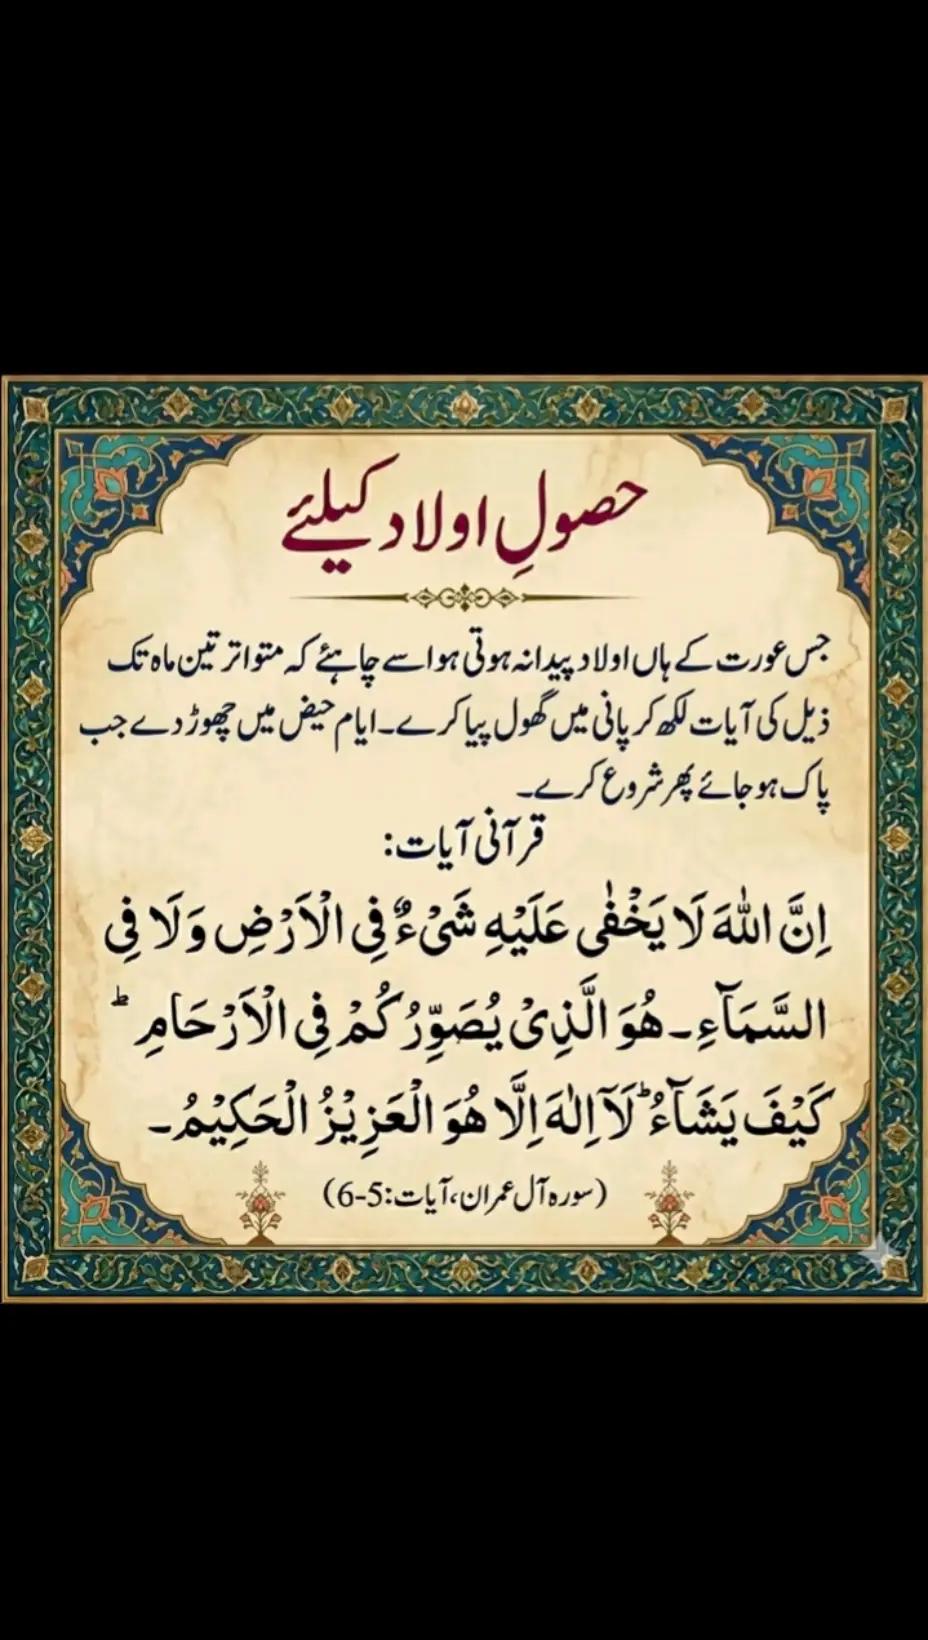 حصولِ اولاد کیلئے
جس عورت کے ہاں اولاد پیدا نہ ہوتی ہو اسے چاہئے کہ متواتر تین ماہ تک
ذیل کی آیات لکھ کر پانی میں گھول پیا کرے۔ ایام حیض میں چھوڑ دے جب
پاک ہو جائے پھر شروع کرے۔
قرآنی آیات:
اِنَّ اللّٰهَ لَا يَخْفٰى عَلَيْهِ شَىْءٌ فِى الْاَرْضِ وَلَا فِى
السَّمَآءِ۔ هُوَ الَّذِىْ يُصَوِّرُكُمْ فِى الْاَرْحَامِ ؕ
كَيْفَ يَشَآءُ ؕ لَآ اِلٰهَ اِلَّا هُوَ الْعَزِيْزُ الْحَكِيْمُ۔
(سورہ آل عمران، آیات: 5-6)